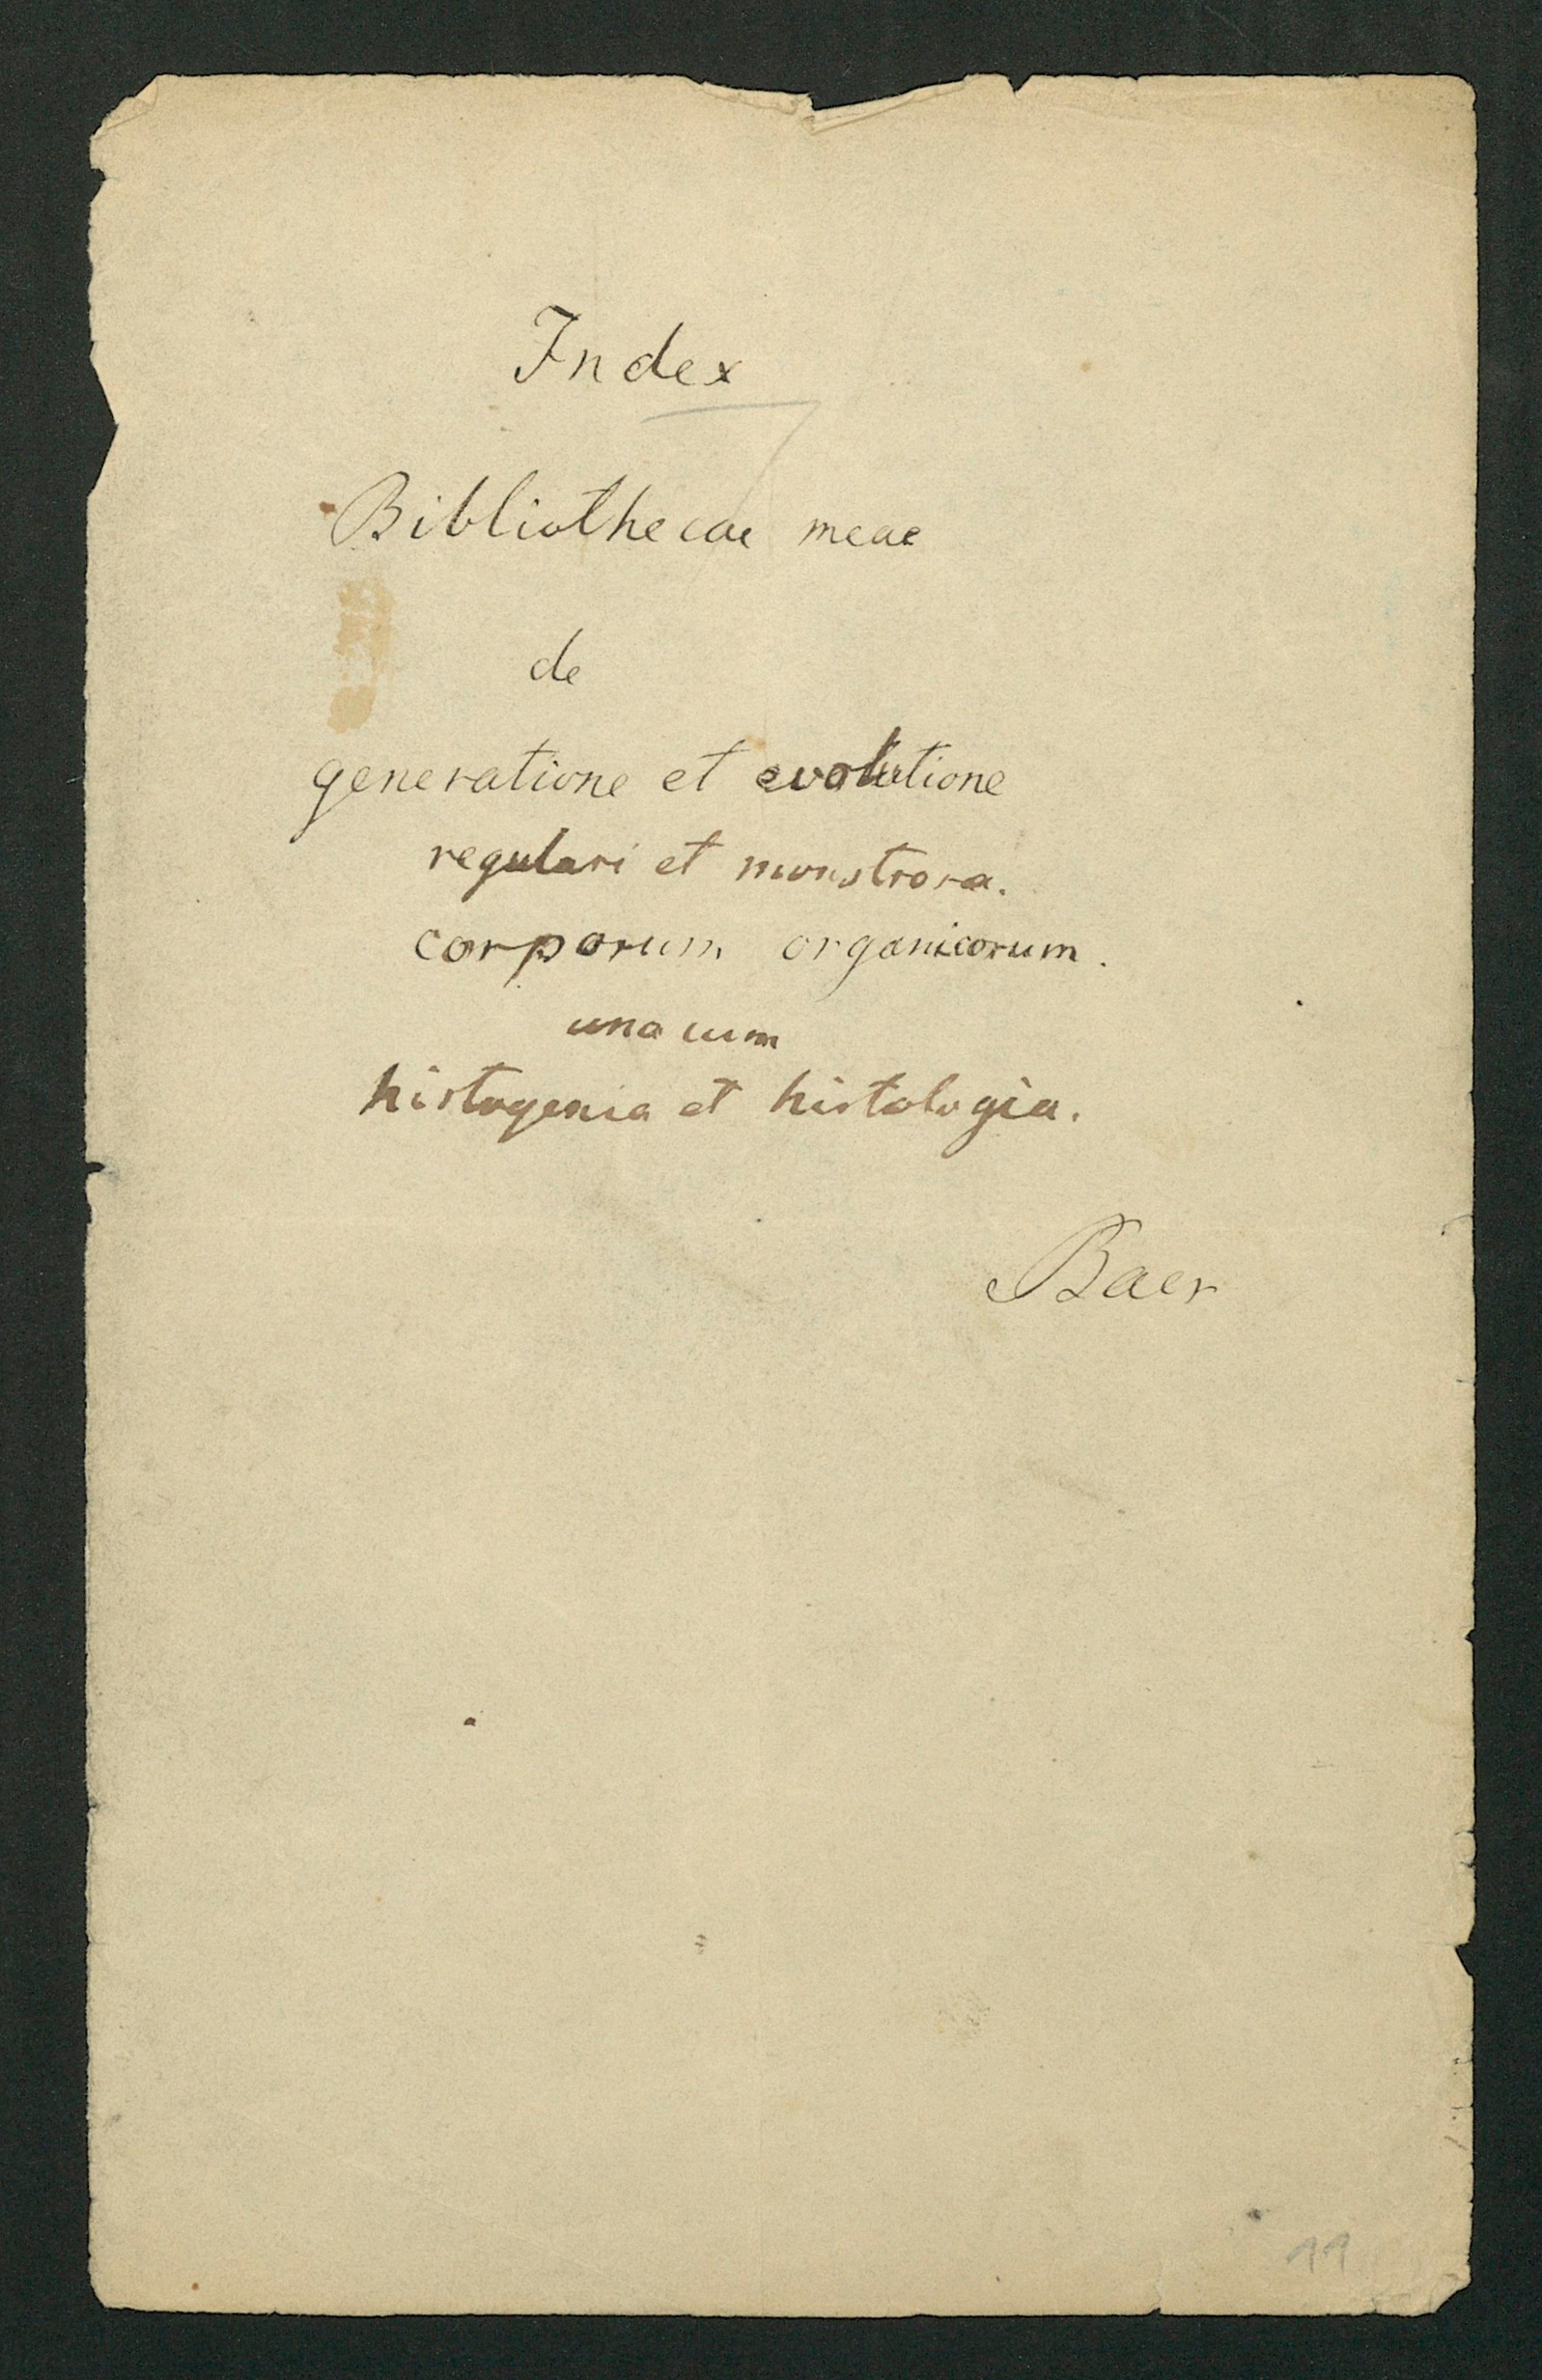 Index
Bibliothecae meae
de
generatione et evolutione
regulari et monstrosa.
corporum organicorum.
una cum
histogenia et histologia.
Baer
11